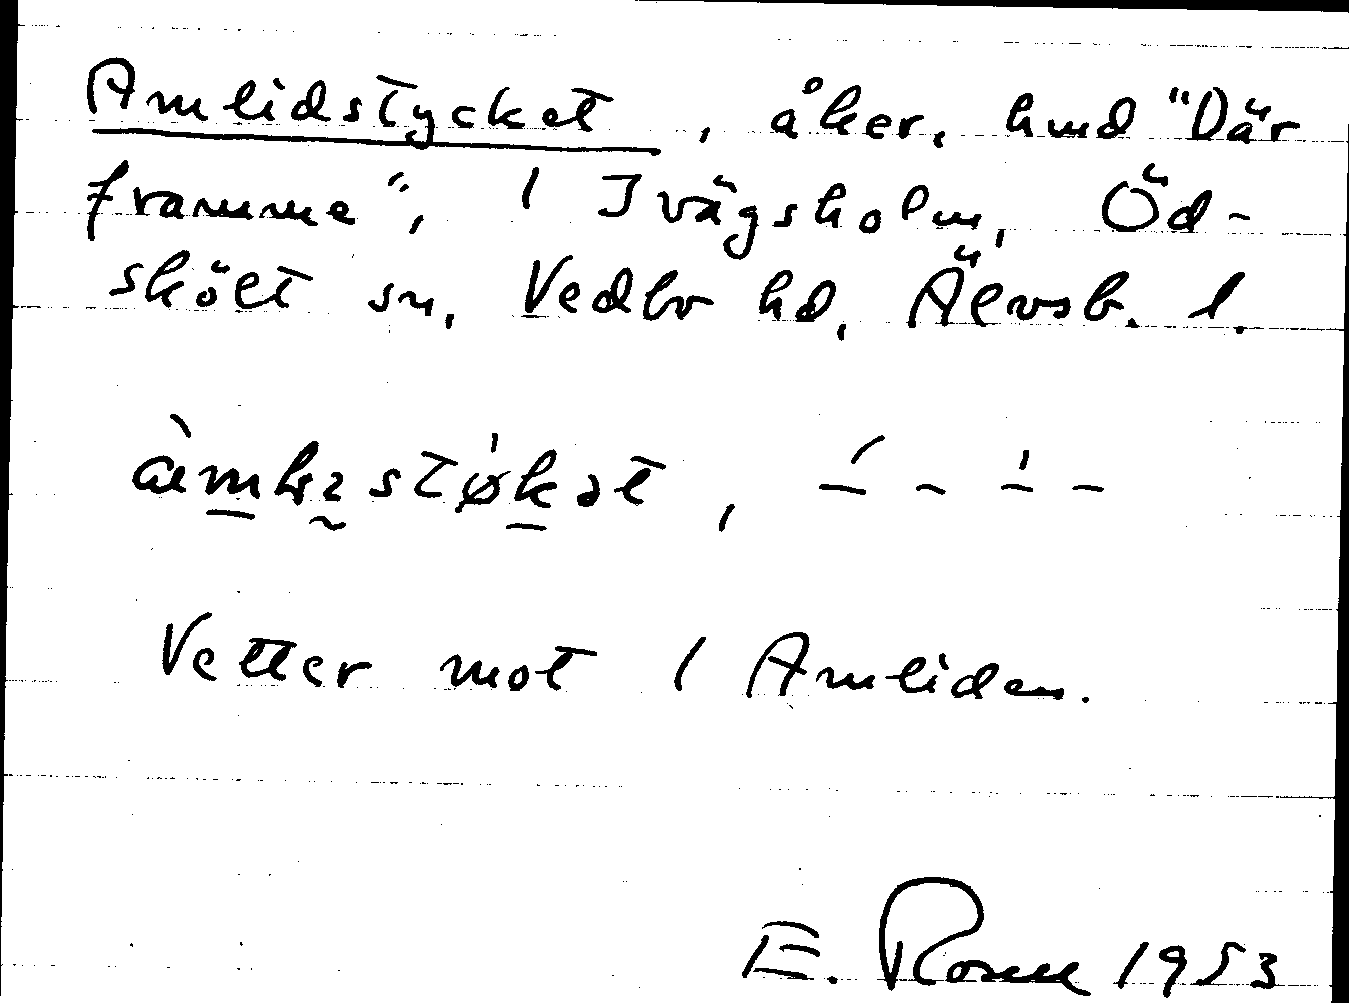 Amlidstycket, åker, hmd "Där
framme", / Ivägsholm, Öd-
skölt sn, Vedbo hd, Älvsb. l.
Vetter mot / Amliden.
E. Rosell 1953